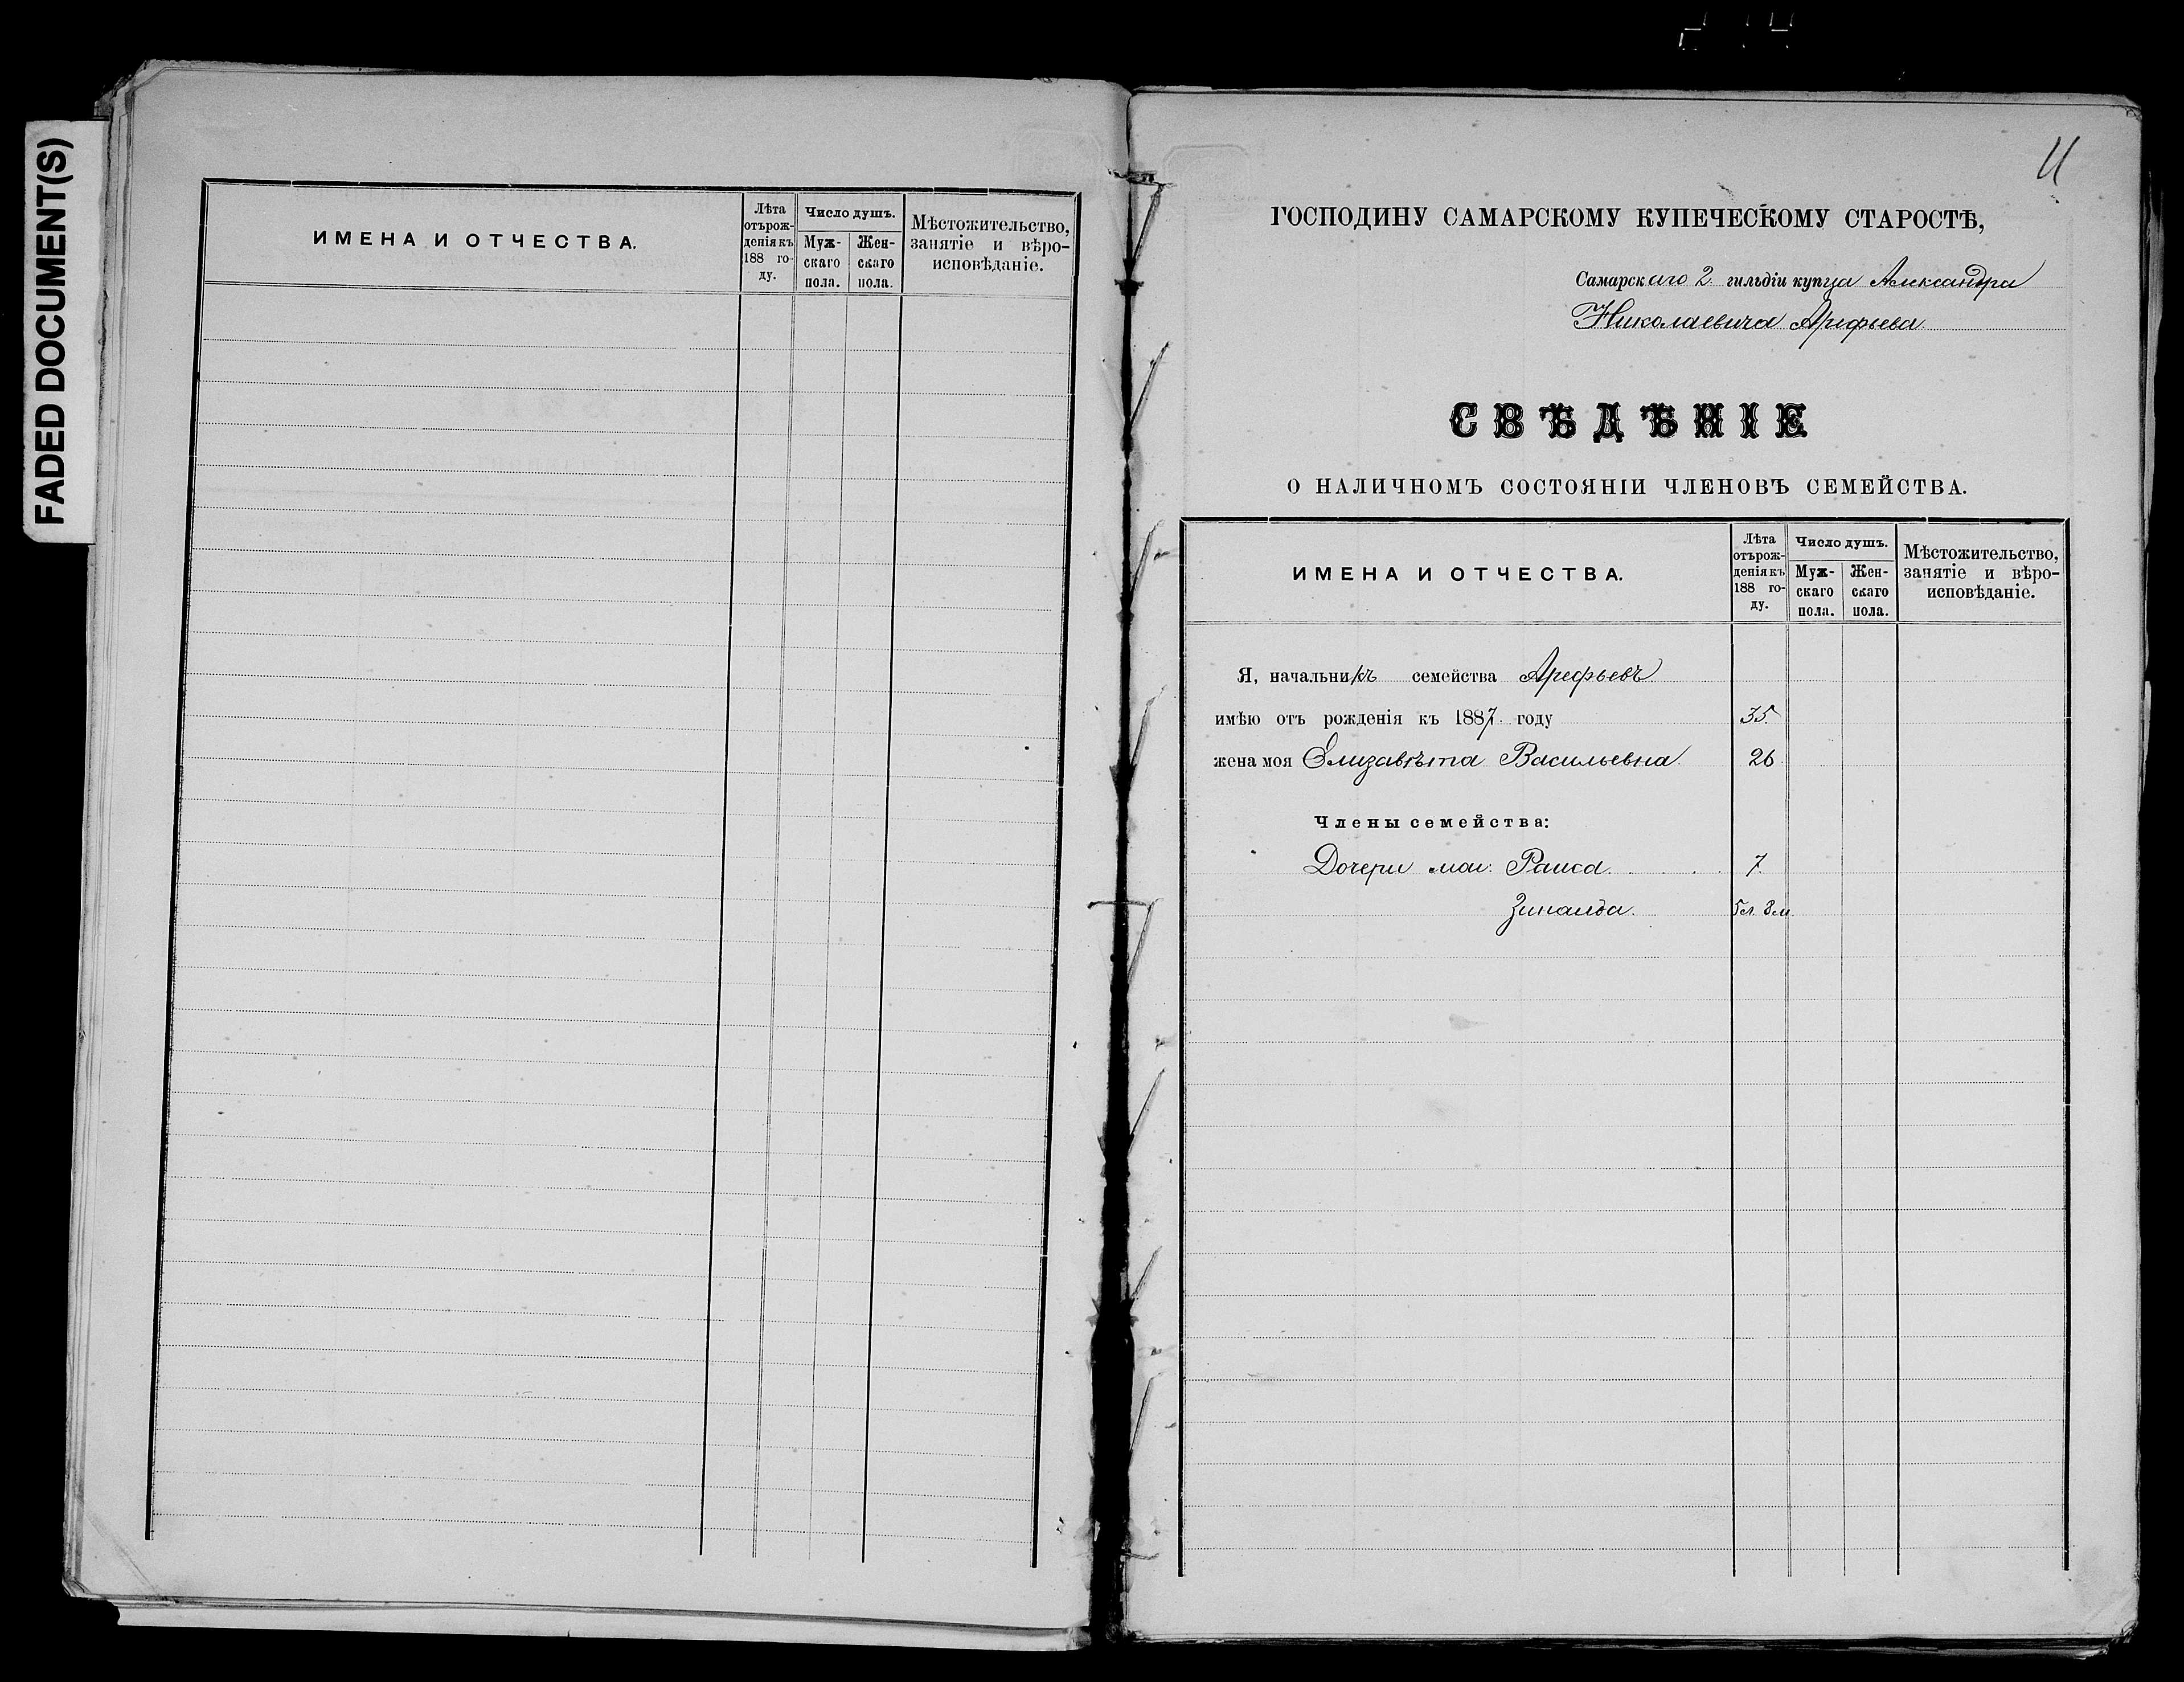 FADED DOCUMENT(S)
ИМЕНА И ОТЧЕСТВА.
Лѣта
отърож-
денія къ
188 го-
ду.
Число душъ.
Муж-
скаго
пола.
Жен-
скаго
пола.
Мѣстожительство,
занятіе и вѣро-
исповѣданіе.
11
ГОСПОДИНУ САМАРСКОМУ КУПЕЧЕСКОМУ СТАРОСТѢ,
Самарскаго 2. гильдіи купца Александра
Николаевича Арефьева.
СВѢДѢНІЕ
О НАЛИЧНОМЪ СОСТОЯНІИ ЧЛЕНОВЪ СЕМЕЙСТВА.
ИМЕНА И ОТЧЕСТВА.
Лѣта
отърож-
денія къ
188 го-
ду.
Число душъ.
Муж-
скаго
пола.
Жен-
скаго
пола.
Мѣстожительство,
занятіе и вѣро-
исповѣданіе.
Я, начальникъ семейства Арефьевъ
имѣю отъ рожденія къ 1887. году 35.
жена моя Елизавѣта Васильевна. 26
Члены семейства:
Дочери мои: Раиса. 7.
Зинаида. 5л. 8м.